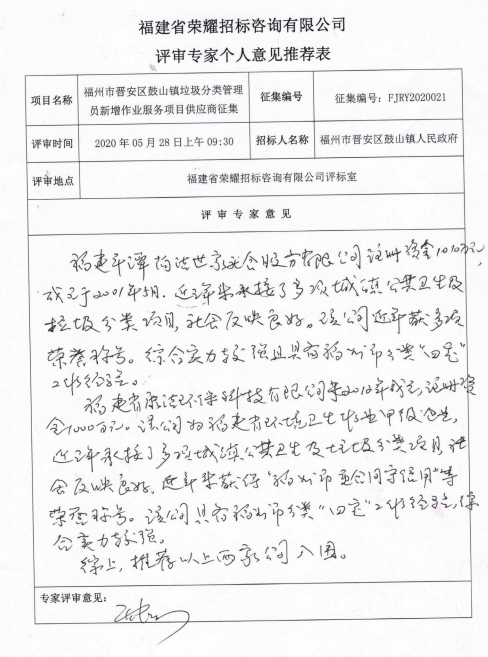 福建省荣耀招标咨询有限公司
评审专家个人意见推荐表
项目名称 福州市晋安区鼓山镇垃圾分类管理员新增作业服务项目供应商征集 征集编号 征集编号：FJRY2020021
评审时间 2020 年 05 月 28 日上午 09:30 招标人名称 福州市晋安区鼓山镇人民政府
评审地点 福建省荣耀招标咨询有限公司评标室
评 审 专 家 意 见
福建平潭 洁世家 股份有限公司注册资金1010万元，
成立于2001年5月．近三年来承接了多项城镇公共卫生及
垃圾分类项目，社会反映良好。该公司近年获多项
荣誉称号。综合实力较强且具有福州市分类“四定”
工作经验。
福建省 洁环保科技有限公司 成立，注册资
金1000万元。该公司为福建省环境卫生作业甲级企业，
近三年承接了多项城镇公共卫生及垃圾分类项目，社
会反映良好，近年来获得“福州市重合同守信用”等
荣誉称号。该公司具有福州市分类“四定”工作经验，综
合实力较强。
综上，推荐以上两家公司入围。
专家评审意见：